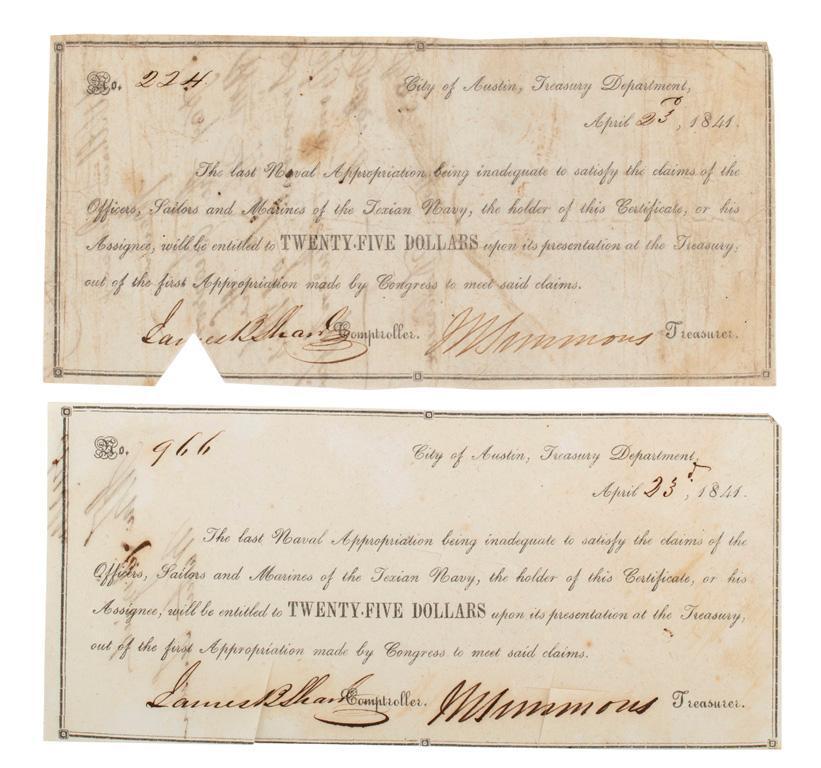 No. 224.
City of Austin, Treasury Department,
April 23d, 1841.
The last Naval Appropriation being inadequate to satisfy the claims of the
Officers, Sailors and Marines of the Texian Navy, the holder of this Certificate, or his
Assignee, will be entitled to TWENTY-FIVE DOLLARS upon its presentation at the Treasury,
out of the first Appropriation made by Congress to meet said claims.
James B Shaw Comptroller. W Simmons Treasurer.
No. 966
City of Austin, Treasury Department,
April 23d, 1841.
The last Naval Appropriation being inadequate to satisfy the claims of the
Officers, Sailors and Marines of the Texian Navy, the holder of this Certificate, or his
Assignee, will be entitled to TWENTY-FIVE DOLLARS upon its presentation at the Treasury,
out of the first Appropriation made by Congress to meet said claims.
James B Shaw Comptroller. W Simmons Treasurer.